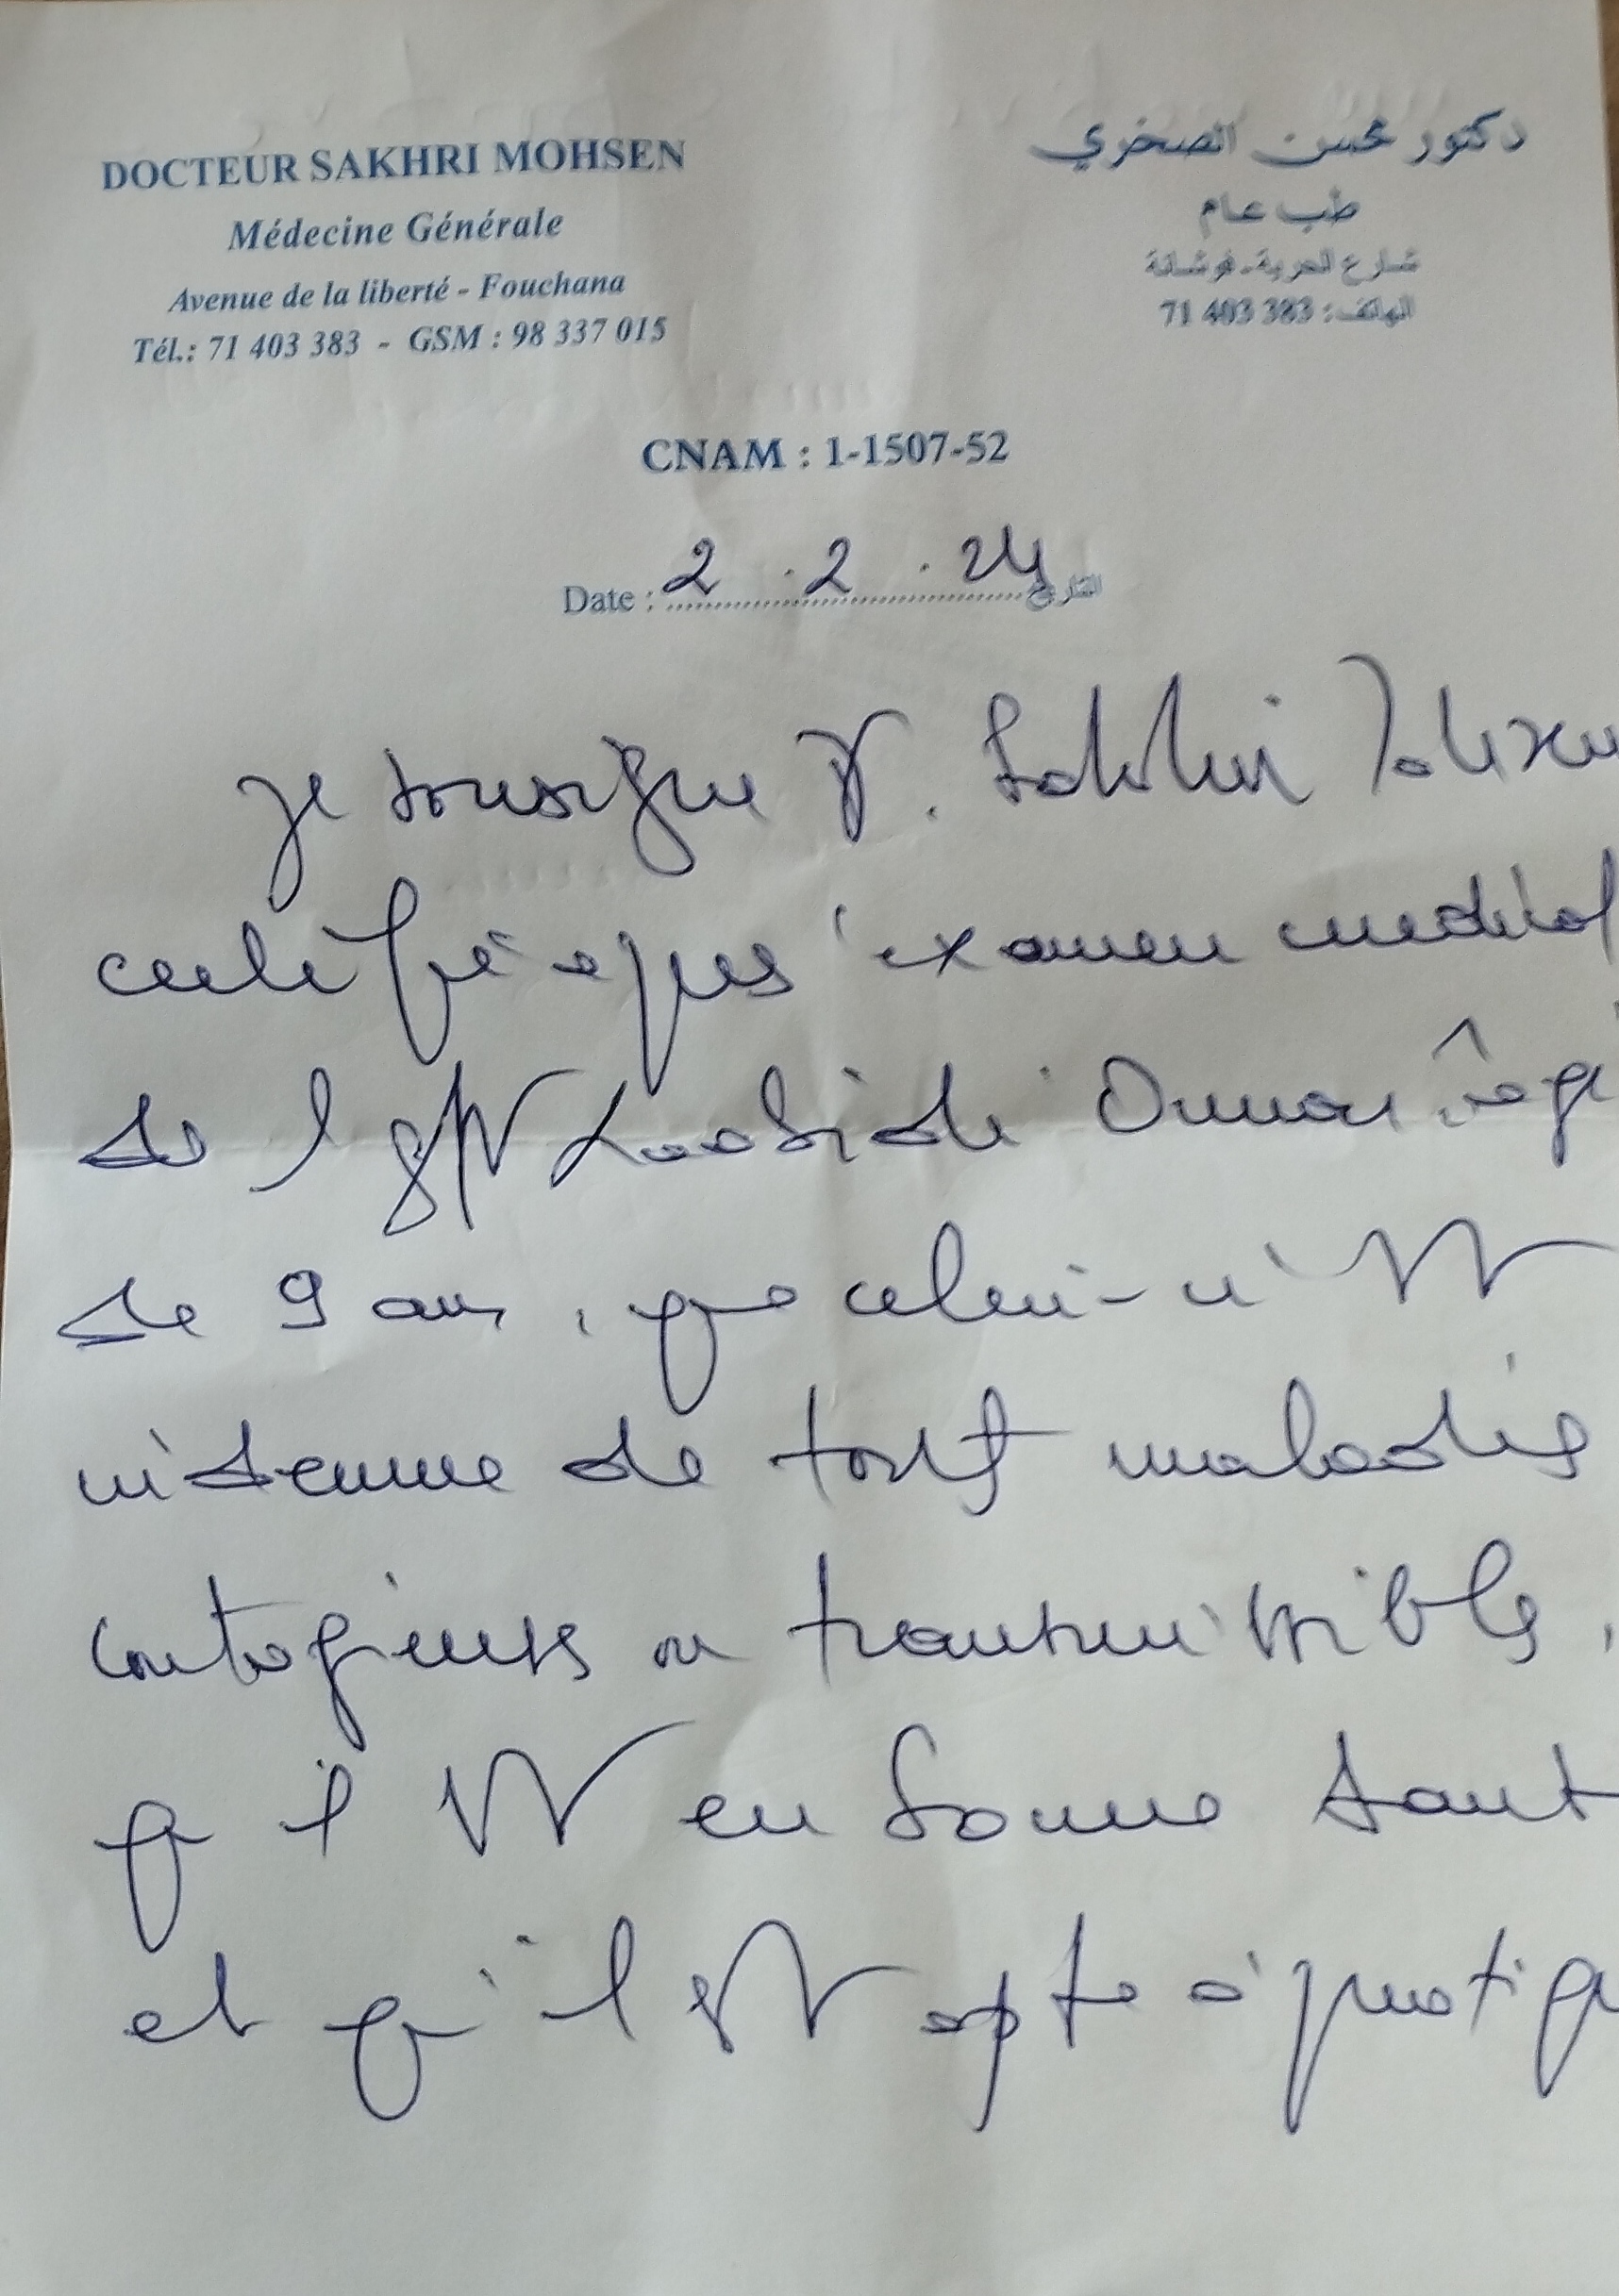 DOCTEUR SAKHRI MOHSEN
Médecine Générale
Avenue de la liberté - Fouchana
Tél.: 71 403 383 - GSM : 98 337 015
دكتور محسن الصخري
طب عام
شارع الحرية - فوشانة
الهاتف : 71 403 383
CNAM : 1-1507-52
Date : 2 . 2 . 24 التاريخ
Je soussigné Dr. Sakhri Mohsen
certifie après examen médical
de l Omar âgé
de 9 ans, que celui-ci est
indemne de toutes maladies
contagieuses ou transmissibles,
qu'il est en bonne sant
et qu'il est apte à pratiqu